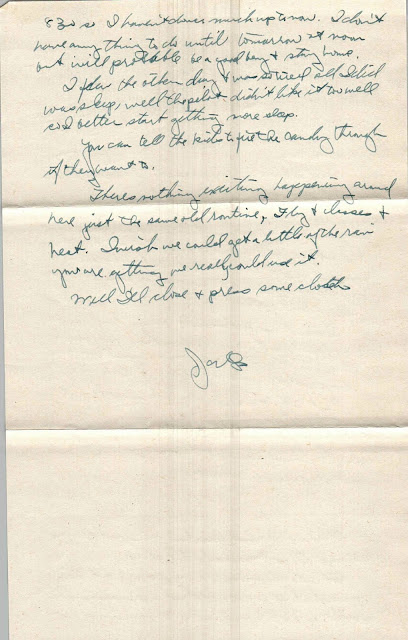 830 so I haven't done much up to now. I don't
have anything to do until tomorrow at noon
but will probable be a good boy & stay home.
I flew the other day & was so tired all I did
was sleep, well the pilot didn't like it too well
so I better start getting more sleep.
You can tell the kids to just the candy through
if they want to.
There's nothing exciting happening around
here just the same old routine, Fly & classes &
heat. I wish we could get a little of the rain
you are getting, we really could use it.
Well I'll close & press some clothes
Jack